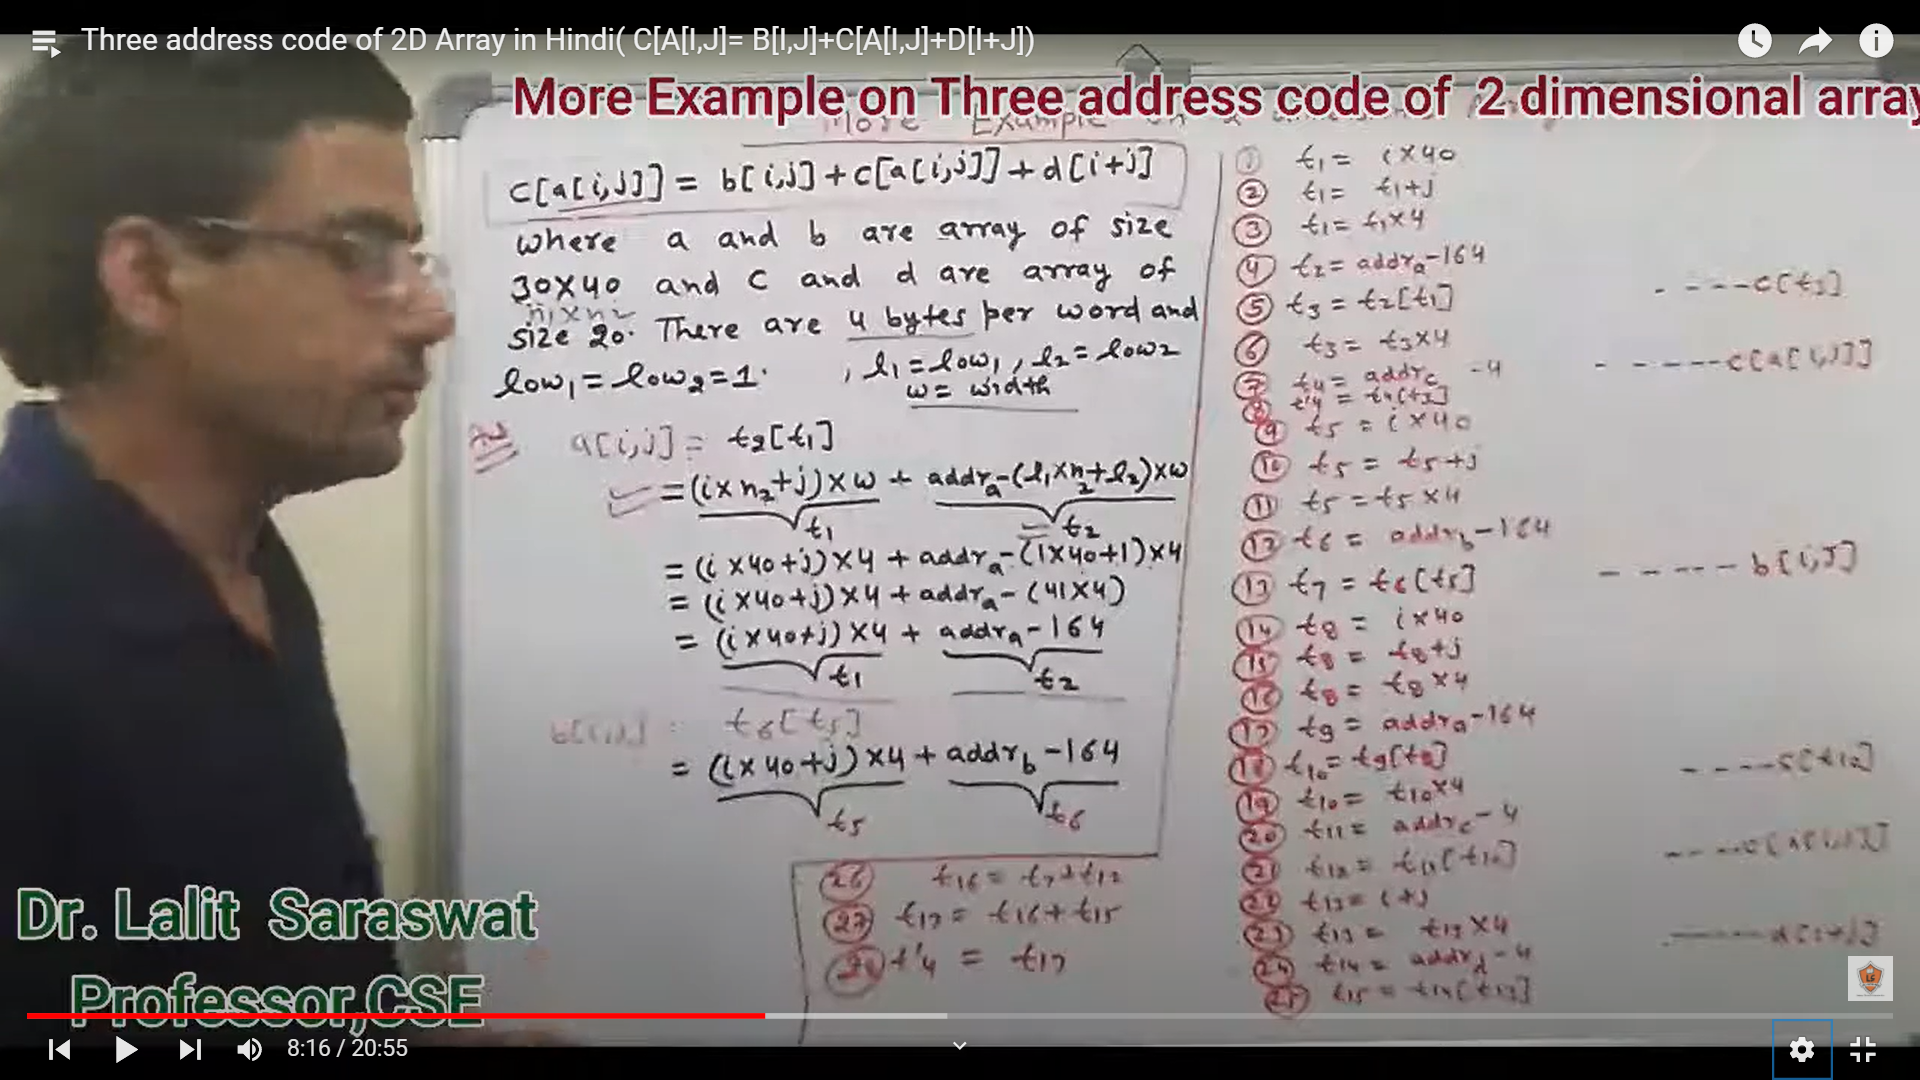 Three address code of 2D Array in Hindi( C[A[I,J]= B[I,J]+C[A[I,J]+D[I+J])
More Example on Three address code of 2 dimensional array
More Example on
c[a[i,j]] = b[i,j] + c[a[i,j]] + d[i+j]
where a and b are array of size
30×40 and c and d are array of
n1×n2
size 20. There are 4 bytes per word and
low1 = low2 = 1. , l1 = low1 , l2 = low2
w = width
Ans a[i,j] = t2[t1]
= (i×n2+j)×w + addra-(l1×n2+l2)×w
t1 t2
= (i×40+j)×4 + addra-(1×40+1)×4
= (i×40+j)×4 + addra-(41×4)
= (i×40+j)×4 + addra-164
t1 t2
b[i,j] = t6[t5]
= (i×40+j)×4 + addrb-164
t5 t6
26 t16 = t7+t12
27 t17 = t16+t15
28 t'4 = t17
1 t1 = i×40
2 t1 = t1+j
3 t1 = t1×4
4 t2 = addra-164
5 t3 = t2[t1] - ---c[t3]
6 t3 = t3×4
7 t4 = addrc -4 - -----c[a[i,j]]
8 t'4 = t4[t3]
9 t5 = i×40
10 t5 = t5+j
11 t5 = t5×4
12 t6 = addrb-164
13 t7 = t6[t5] - - - - - b[i,j]
14 t8 = i×40
15 t8 = t8+j
16 t8 = t8×4
17 t9 = addra-164
18 t10 = t9[t8] - ----c[t10]
19 t10 = t10×4
20 t11 = addrc-4
21 t12 = t11[t10] - - --c[a[i,j]]
22 t13 = i+j
23 t13 = t13×4 ------d[i+j]
24 t14 = addrd-4
25 t15 = t14[t13]
Dr. Lalit Saraswat
Professor,CSE
8:16 / 20:55